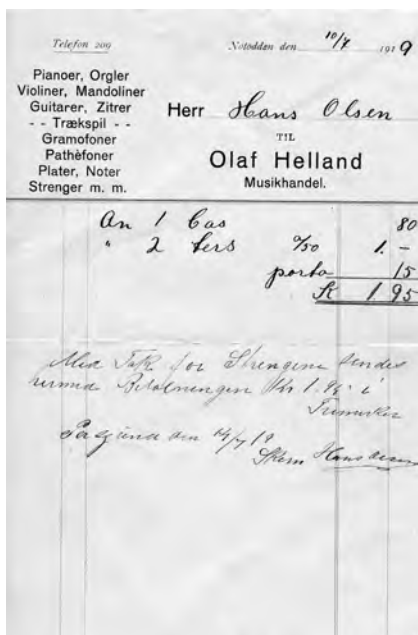 Telefon 209
Notodden den 10/7 1919
Pianoer, Orgler
Violiner, Mandoliner
Guitarer, Zitrer
- - Trækspil - -
Gramofoner
Pathèfoner
Plater, Noter
Strenger m. m.
Herr Hans Olsen
TIL
Olaf Helland
Musikhandel.
An 1 Bas 80
" 2 ters %50 1. -
porto 15
K 1 95
Med Takk for Strengene sendes
Betalningen Kr 1.95 i
Frimerker
14/7 19
Skien Hans